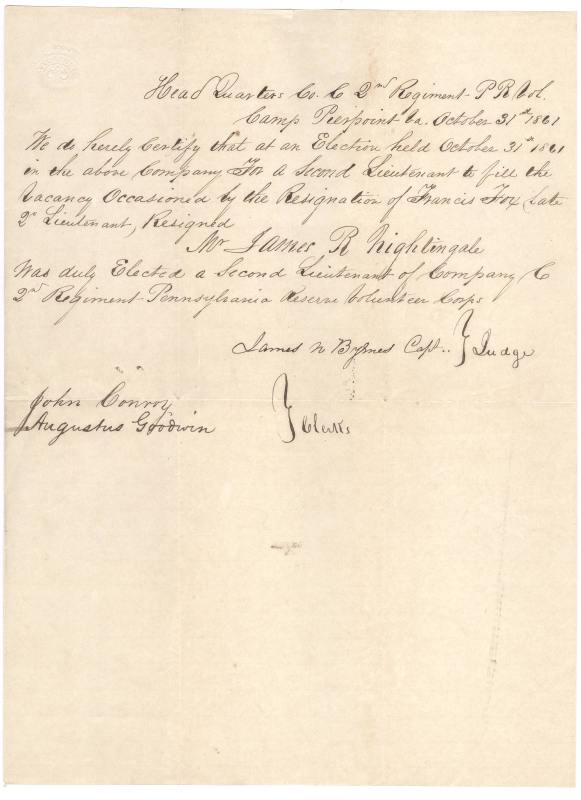 Head Quarters Co. C 2nd Regiment P R Vol.
Camp Pierpoint Va. October 31st 1861
We do herely Certify that at an Election held October 31st 1861
in the above Company For a Second Lieutenant to fill the
Vacancy Occasioned by the Resignation of Francis Fox Late
2nd Lieutenant, Resigned
Mr James R Nightingale
Was duly Elected a Second Lieutenant of Company C
2nd Regiment Pennsylvania Reserve Volunteer Corps
James N Byrnes Capt.. } Judge
John Conroy
Augustus Goodwin } Clerks